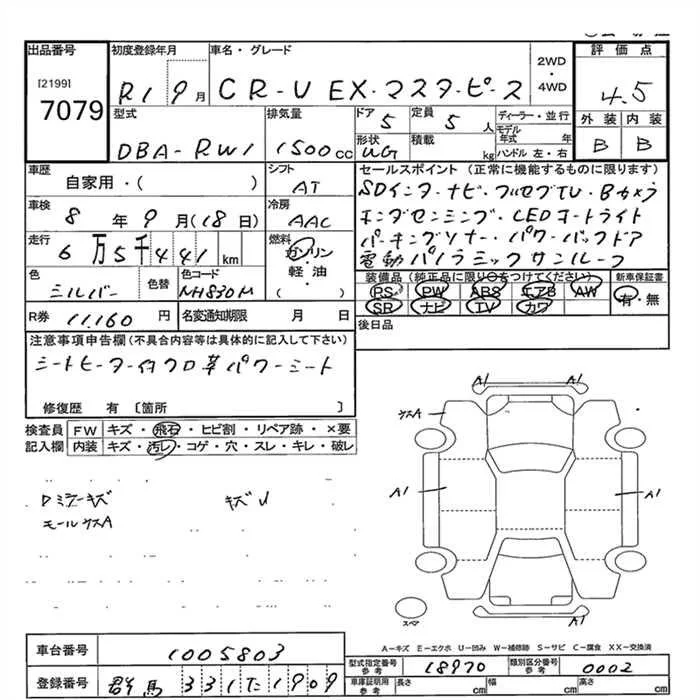 出品番号
[2199]
7079
初度登録年月
R1 9月
車名・グレード
CR-V EX・マスターピース
2WD
・
4WD
評価点
4.5
外装 内装
B B
型式
DBA-RW1
排気量
1500cc
ドア
5
定員
5人
形状
WG
積載
kg
ディーラー・並行
モデル年式 年
ハンドル 左・右
車歴
自家用・( )
シフト
AT
車検
8年9月(18日)
冷房
AAC
走行
6万5千441km
燃料
ガソリン
軽・油
( )
色
シルバー
色替
色コード
NH830M
R券
11,160円
名変通知期限 月 日
セールスポイント(正常に機能するものに限ります)
SDインターナビ・フルセグTV・Bカメラ
ホンダセンシング・LEDオートライト
パーキングソナー・パワーバックドア
電動パノラミックサンルーフ
装備品(純正品に限り○をつけてください)
PS PW ABS エアB AW
SR ナビ TV カワ
新車保証書
有・無
後日品
注意事項申告欄(不具合内容等は具体的に記入して下さい)
シートヒーター付クロ革パワーシート
修復歴 有 〔箇所 〕
検査員記入欄
FW キズ・飛石・ヒビ割・リペア跡・×要
内装 キズ・汚レ・コゲ・穴・スレ・キレ・破レ
ミラーキズ
キズ
モールウスA
A1 A1
ウスA
A1 A1
スペア
A1
A-キズ E-エクボ U-凹み W-補修跡 S-サビ C-腐食 XX-交換済
車台番号
1005803
登録番号
群馬 331 た 1909
型式指定番号
参考
18970
類別区分番号
参考
0002
車庫証明用
参考
長さ cm
幅 cm
高さ cm